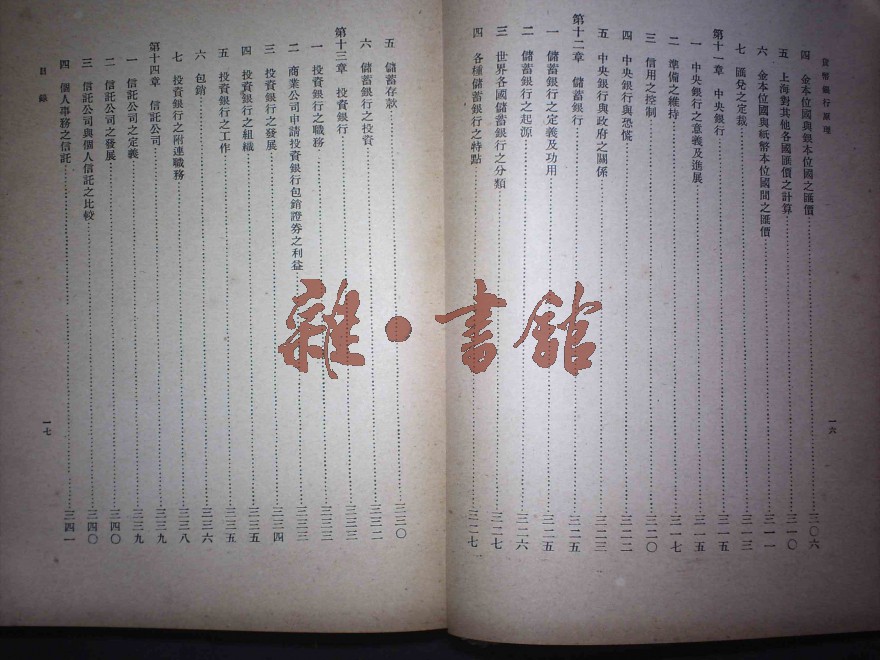 貨幣銀行原理
四 金本位國與銀本位國之匯價 三〇六
五 上海對其他各國匯價之計算 三一〇
六 金本位國與紙幣本位國間之匯價 三一一
七 匯兌之定裁 三一三
第十一章 中央銀行 三一五
一 中央銀行之意義及進展 三一五
二 準備之維持 三一七
三 信用之控制 三二〇
四 中央銀行與恐慌 三二二
五 中央銀行與政府之關係 三二三
第十二章 儲蓄銀行 三二五
一 儲蓄銀行之定義及功用 三二五
二 儲蓄銀行之起源 三二六
三 世界各國儲蓄銀行之分類 三二七
四 各種儲蓄銀行之特點 三二七
一六
五 儲蓄存款 三三〇
六 儲蓄銀行之投資 三三二
第十三章 投資銀行 三三三
一 投資銀行之職務 三三三
二 商業公司申請投資銀行包銷證券之利益 三三三
三 投資銀行之發展 三三四
四 投資銀行之組織 三三五
五 投資銀行之工作 三三五
六 包銷 三三六
七 投資銀行之附連職務 三三八
第十四章 信託公司 三三九
一 信託公司之定義 三三九
二 信託公司之發展 三四〇
三 信託公司與個人信託之比較 三四〇
四 個人事務之信託 三四一
目錄
一七
雜·書館